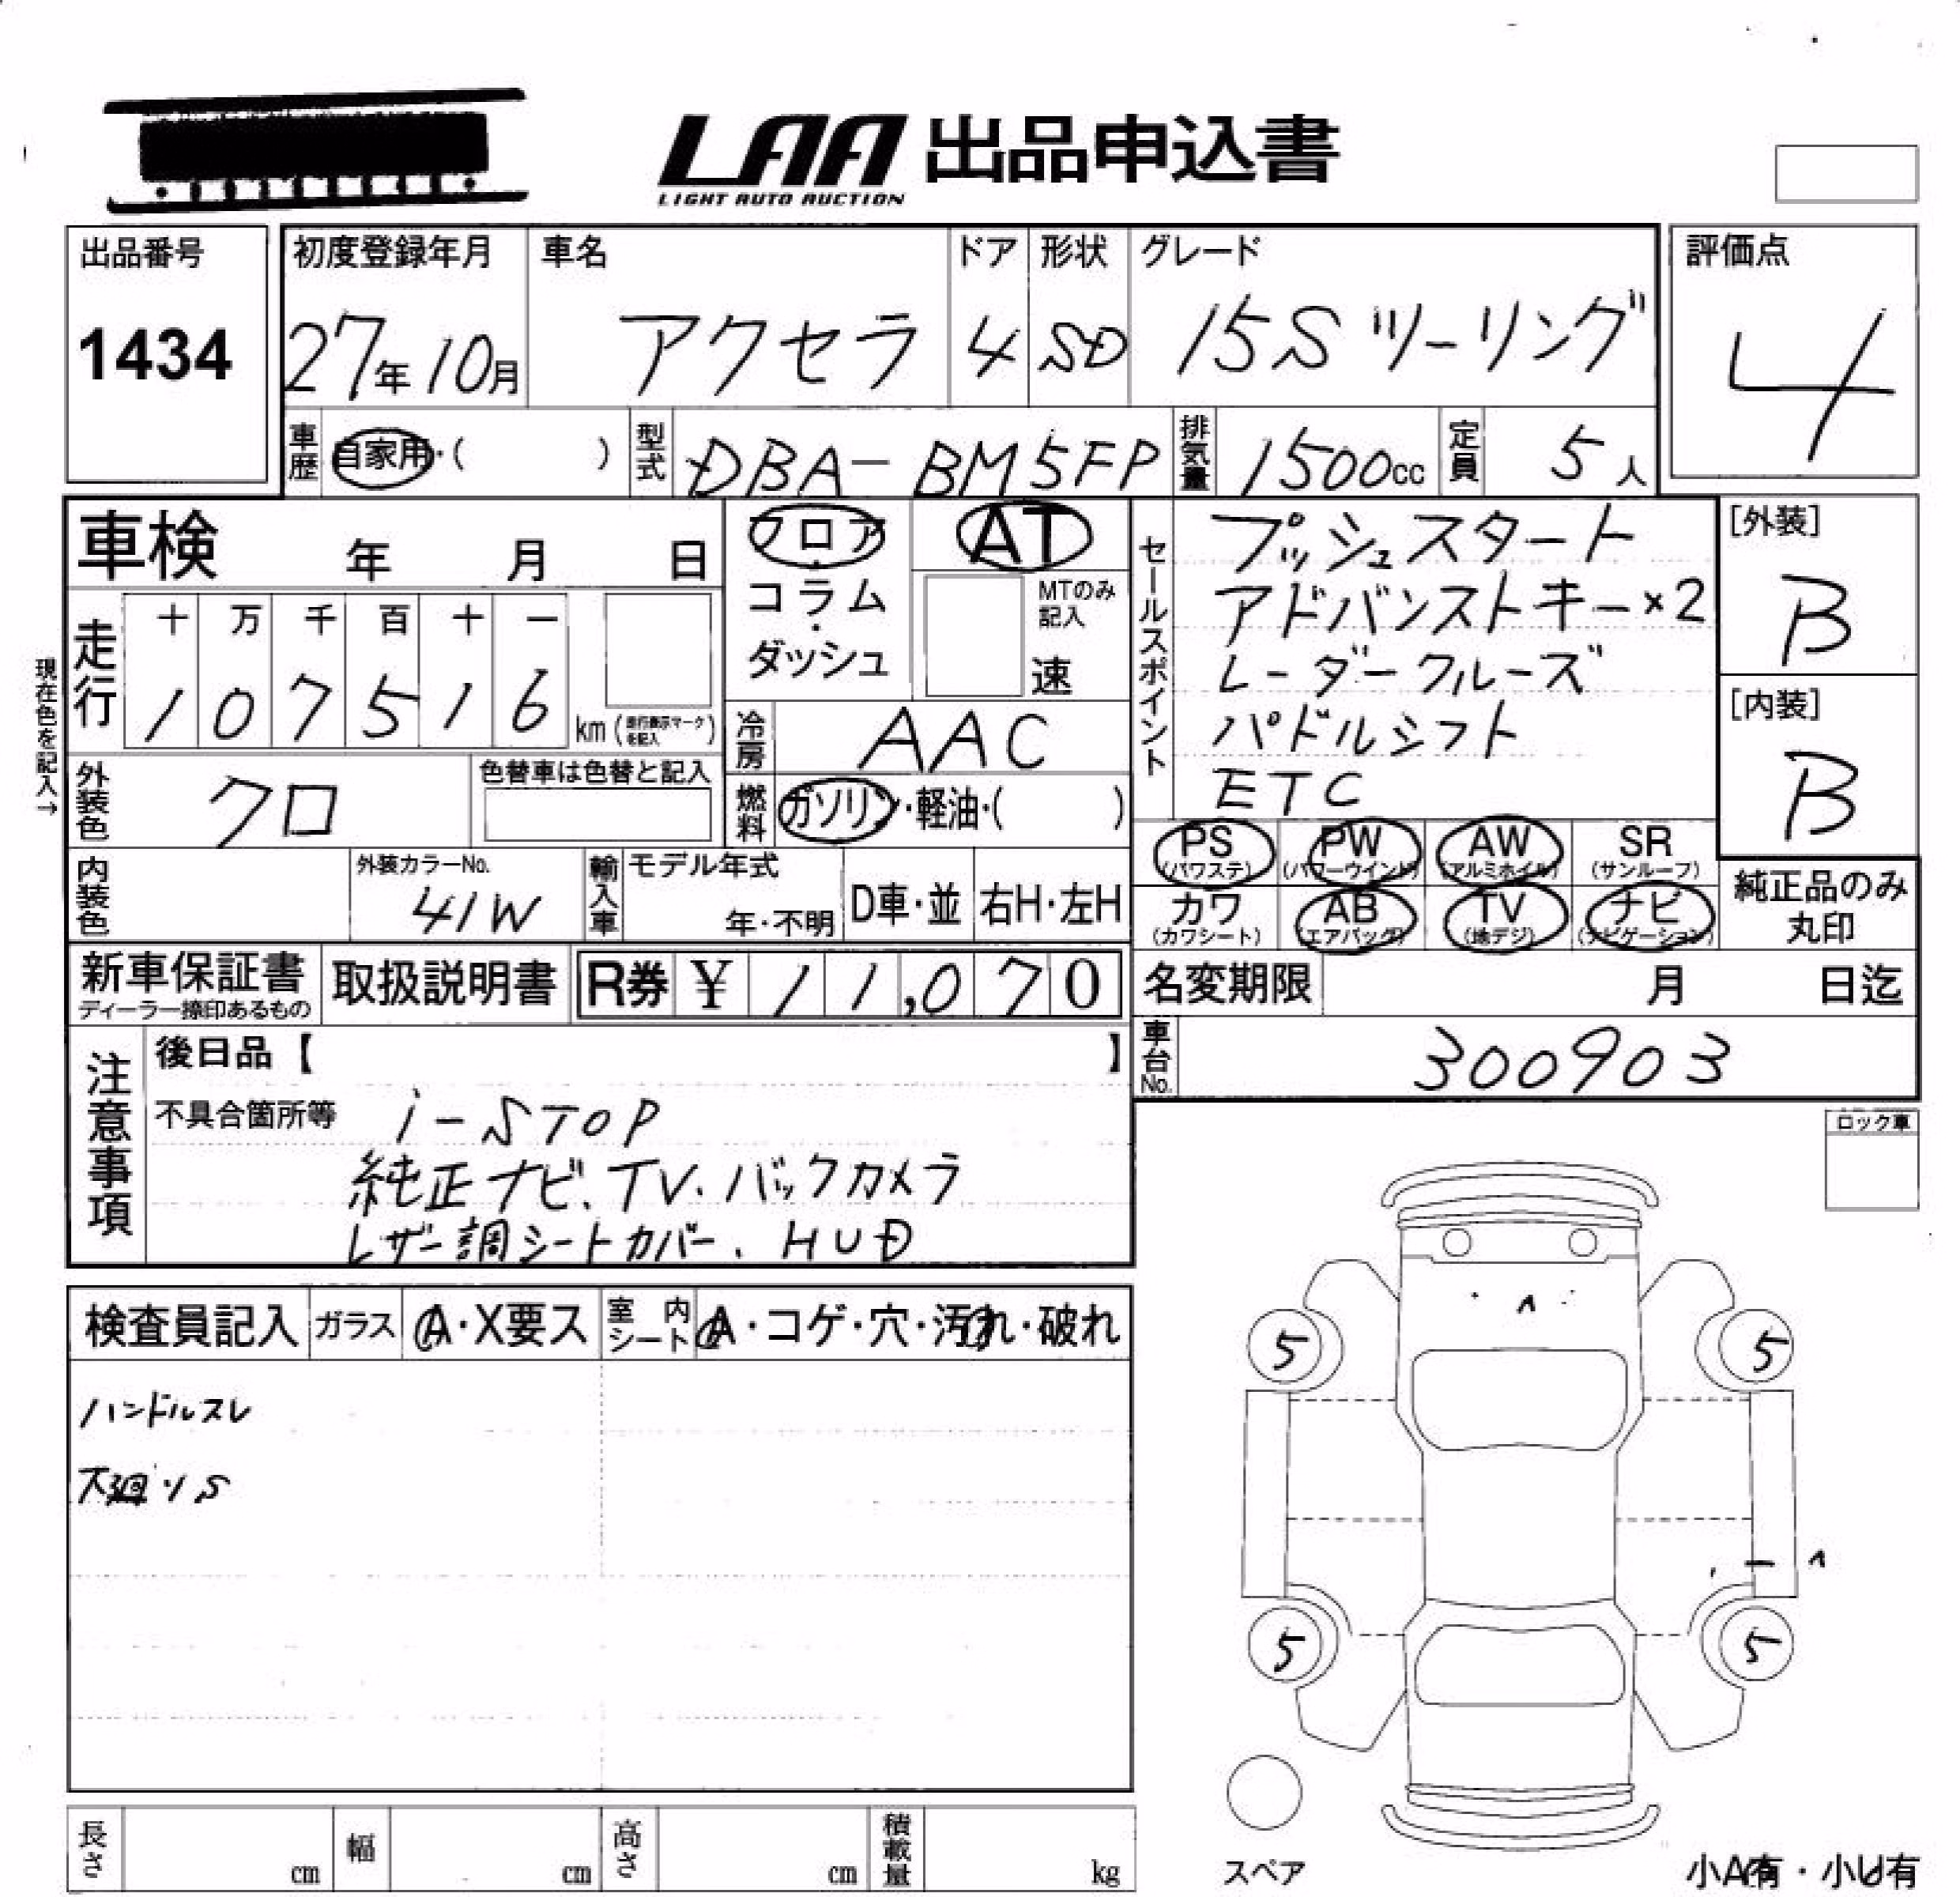 LAA 出品申込書
LIGHT AUTO AUCTION
出品番号
1434
初度登録年月
27年10月
車名
アクセラ
ドア
4
形状
SD
グレード
15S ツーリング
評価点
4
車歴
自家用・( )
型式
DBA-BM5FP
排気量
1500cc
定員
5人
車検 年 月 日
フロア・
コラム・
ダッシュ
AT
MTのみ
記入
速
セールスポイント
プッシュスタート
アドバンストキー×2
レーダークルーズ
パドルシフト
ETC
[外装]
B
[内装]
B
現在色を記入→
走行
十 万 千 百 十 一
1 0 7 5 1 6 km
(走行表示マークを記入)
冷房
AAC
外装色
クロ
色替車は色替と記入
燃料
ガソリン・軽油・( )
PS
(パワステ)
PW
(パワーウインド)
AW
(アルミホイル)
SR
(サンルーフ)
カワ
(カワシート)
AB
(エアバッグ)
TV
(地デジ)
ナビ
(ナビゲーション)
純正品のみ
丸印
内装色
外装カラーNo.
41W
輸入車
モデル年式
年・不明
D車・並
右H・左H
新車保証書
ディーラー捺印あるもの
取扱説明書
R券 ¥ 11,070
名変期限 月 日迄
車台No.
300903
注意事項
後日品【 】
不具合箇所等
i-STOP
純正ナビ.TV.バックカメラ
レザー調シートカバー.HUD
ロック車
検査員記入
ガラス
A・X要ス
室内シート
A・コゲ・穴・汚れ・破れ
ハンドルスレ
下廻りS
5
5
5
5
スペア
長さ cm
幅 cm
高さ cm
積載量 kg
小A有・小U有